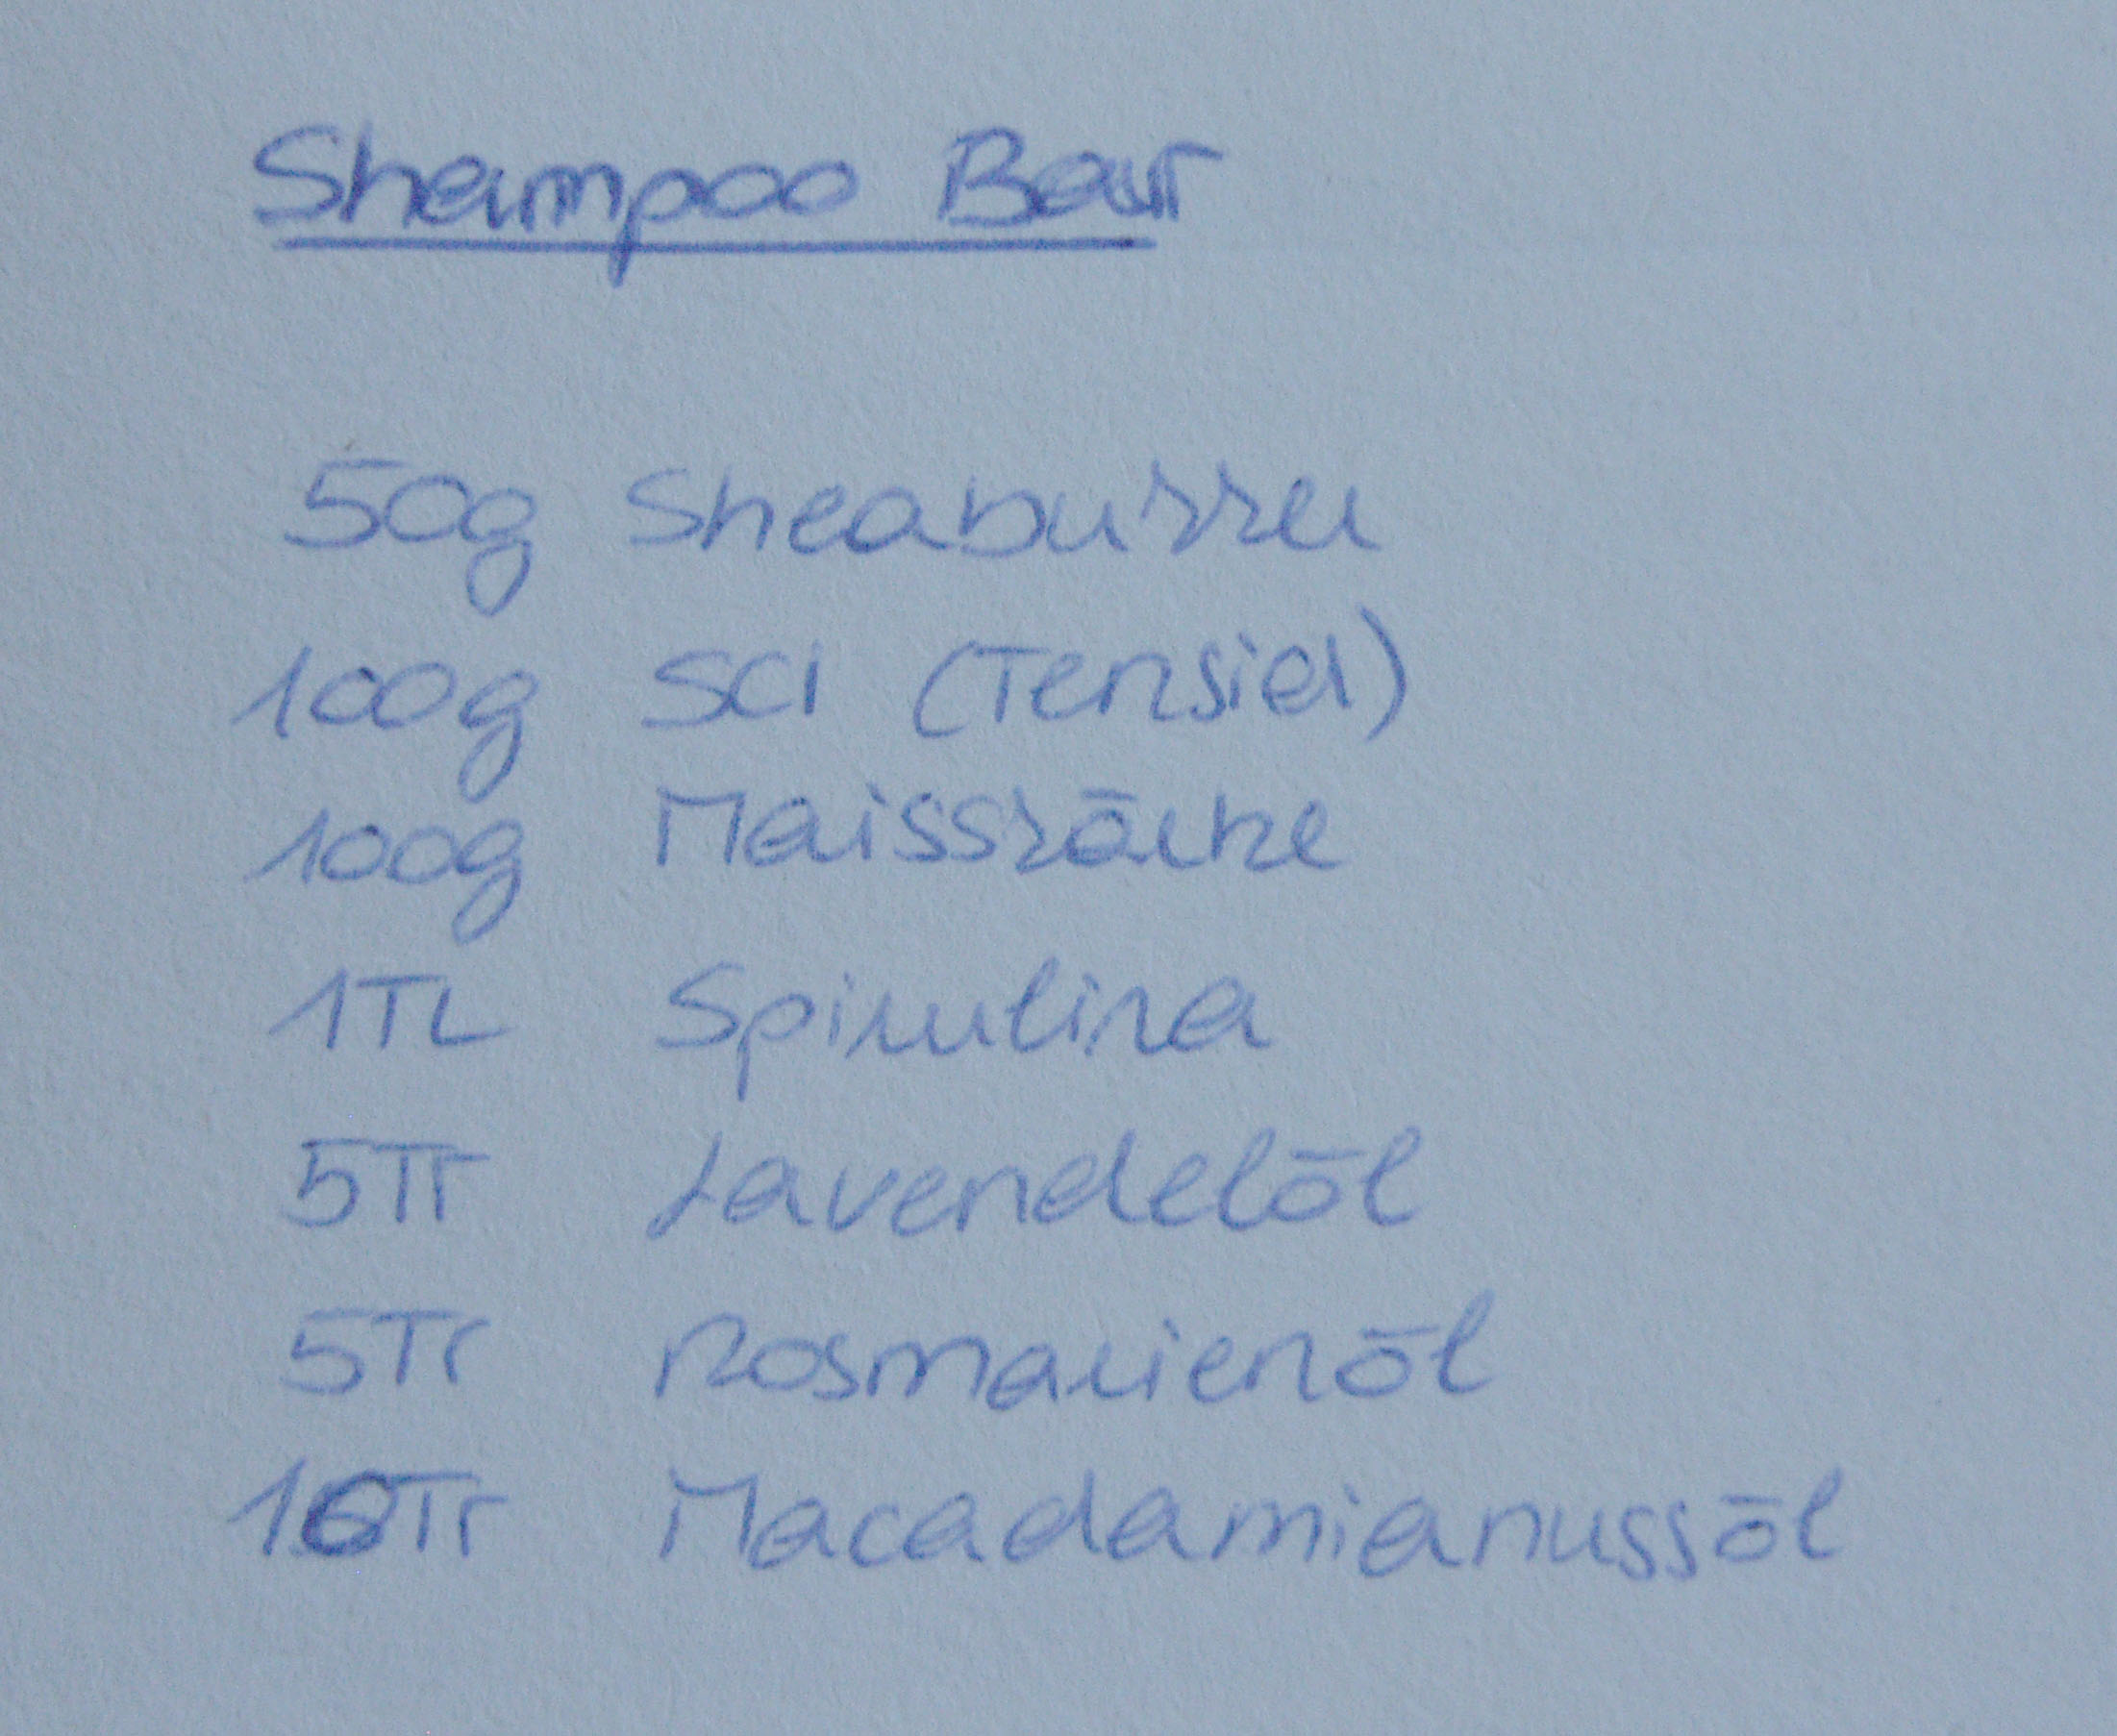 Shampoo Bar
50g Sheabutter
100g SCI (Tensid)
100g Maisstärke
1TL Spirulina
5Tr Lavendelöl
5Tr Rosmarienöl
10Tr Macadamianussöl